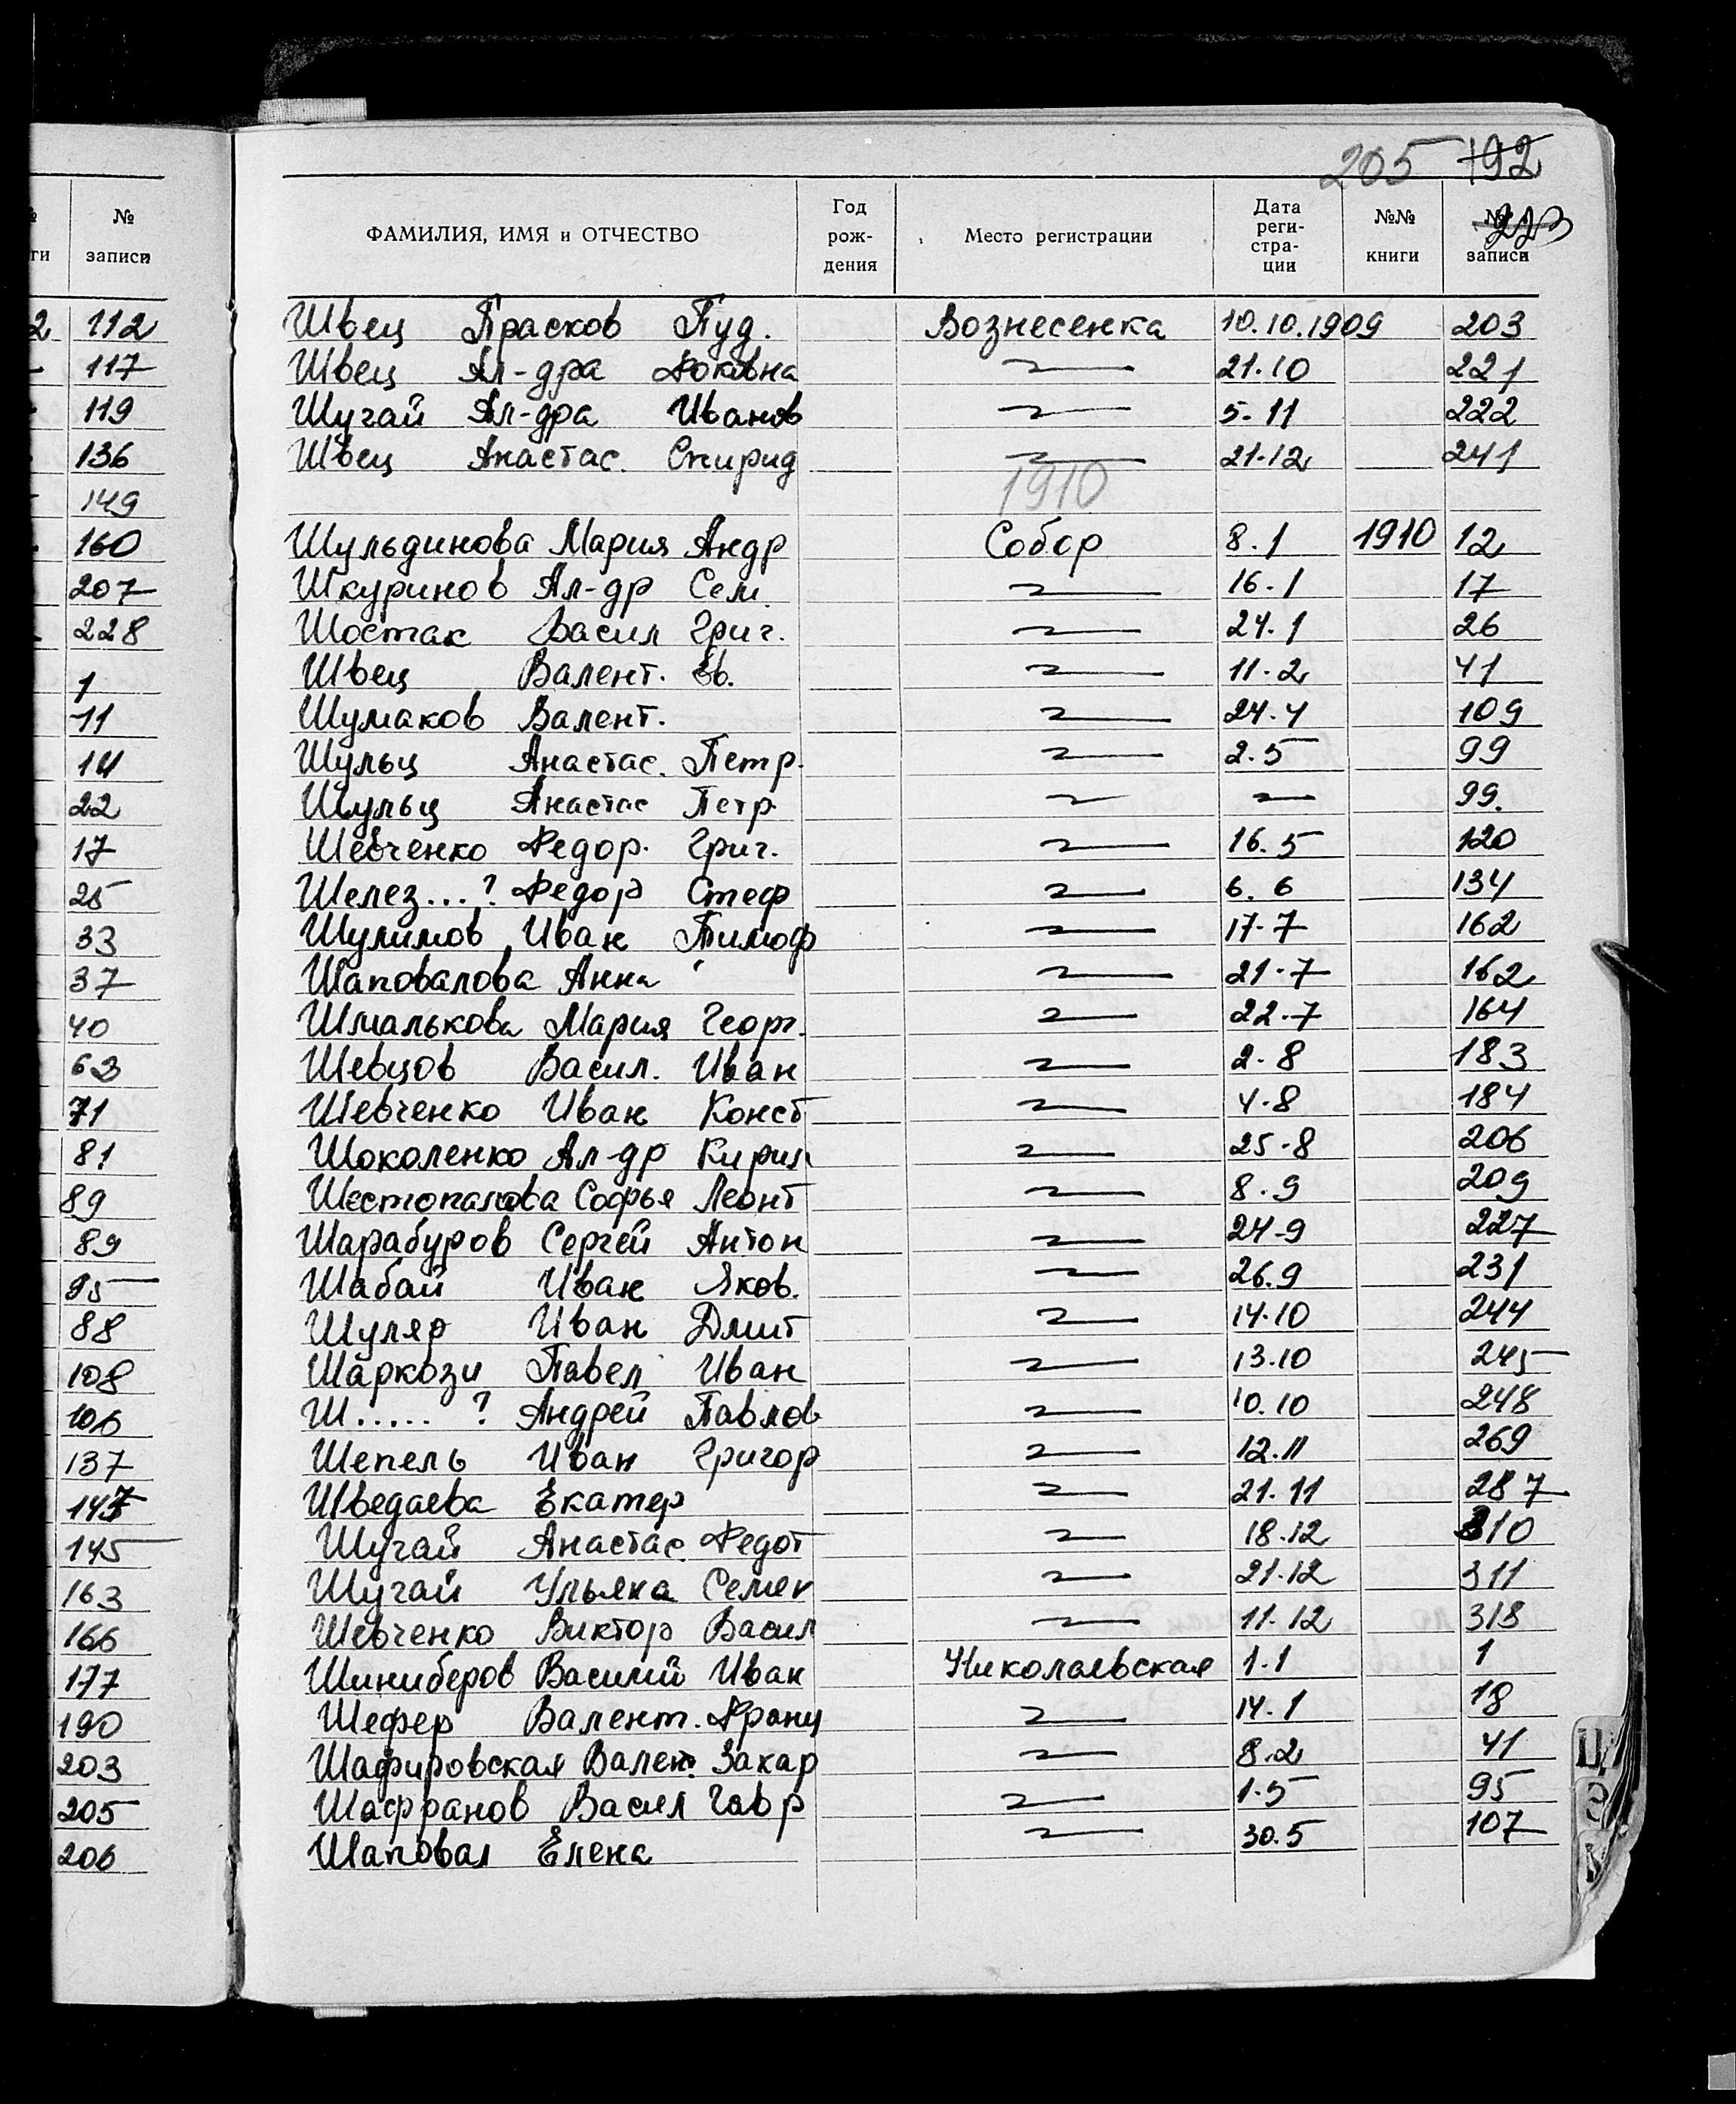 205 192
№ ФАМИЛИЯ, ИМЯ и ОТЧЕСТВО Год рождения Место регистрации Дата регистрации №№ книги № записи 223
ги записи
2 112 Швец Прасков Пуд. Вознесенка 10.10.1909 203
117 Швец Ал-дра Фоковна 〃 21.10 221
119 Шугай Ал-дра Иванов 〃 5.11 222
136 Швец Анастас. Спирид 〃 21.12 241
149 1910
160 Шульдинова Мария Андр Собор 8.1 1910 12
207 Шкуринов Ал-др Сем. 〃 16.1 17
228 Шостак Васил Григ. 〃 24.1 26
1 Швец Валент. Ев. 〃 11.2 41
11 Шумаков Валент. 〃 24.4 109
14 Шульц Анастас. Петр. 〃 2.5 99
22 Шульц Анастас Петр 〃 〃 99.
17 Шевченко Федор. Григ. 〃 16.5 120
25 Шелез...? Федор Стеф 〃 6.6 134
33 Шулимов Иван Тимоф 〃 17.7 162
37 Шаповалова Анна 〃 21.7 162
40 Шмалькова Мария Георг. 〃 22.7 164
63 Шевцов Васил. Иван 〃 2.8 183
71 Шевченко Иван Конст 〃 4.8 184
81 Шоколенко Ал-др Кирил 〃 25.8 206
89 Шестопалова Софья Леонт 〃 8.9 209
89 Шарабуров Сергей Антон 〃 24.9 227
95 Шабай Иван Яков. 〃 26.9 231
88 Шуляр Иван Дмит 〃 14.10 244
108 Шаркози Павел Иван 〃 13.10 245
106 Ш..... ? Андрей Павлов 〃 10.10 248
137 Шепель Иван Григор 〃 12.11 269
147 Шведаева Екатер 〃 21.11 287
145 Шугай Анастас. Федот 〃 18.12 310
163 Шугай Ульяна Семен 〃 21.12 311
166 Шевченко Виктор Васил 〃 11.12 318
177 Шиниберов Василий Иван Николаевская 1.1 1
190 Шефер Валент. Франц 〃 14.1 18
203 Шафировская Вален. Захар 〃 8.2 41
205 Шафранов Васил Гавр 〃 1.5 95
206 Шаповал Елена 〃 30.5 107